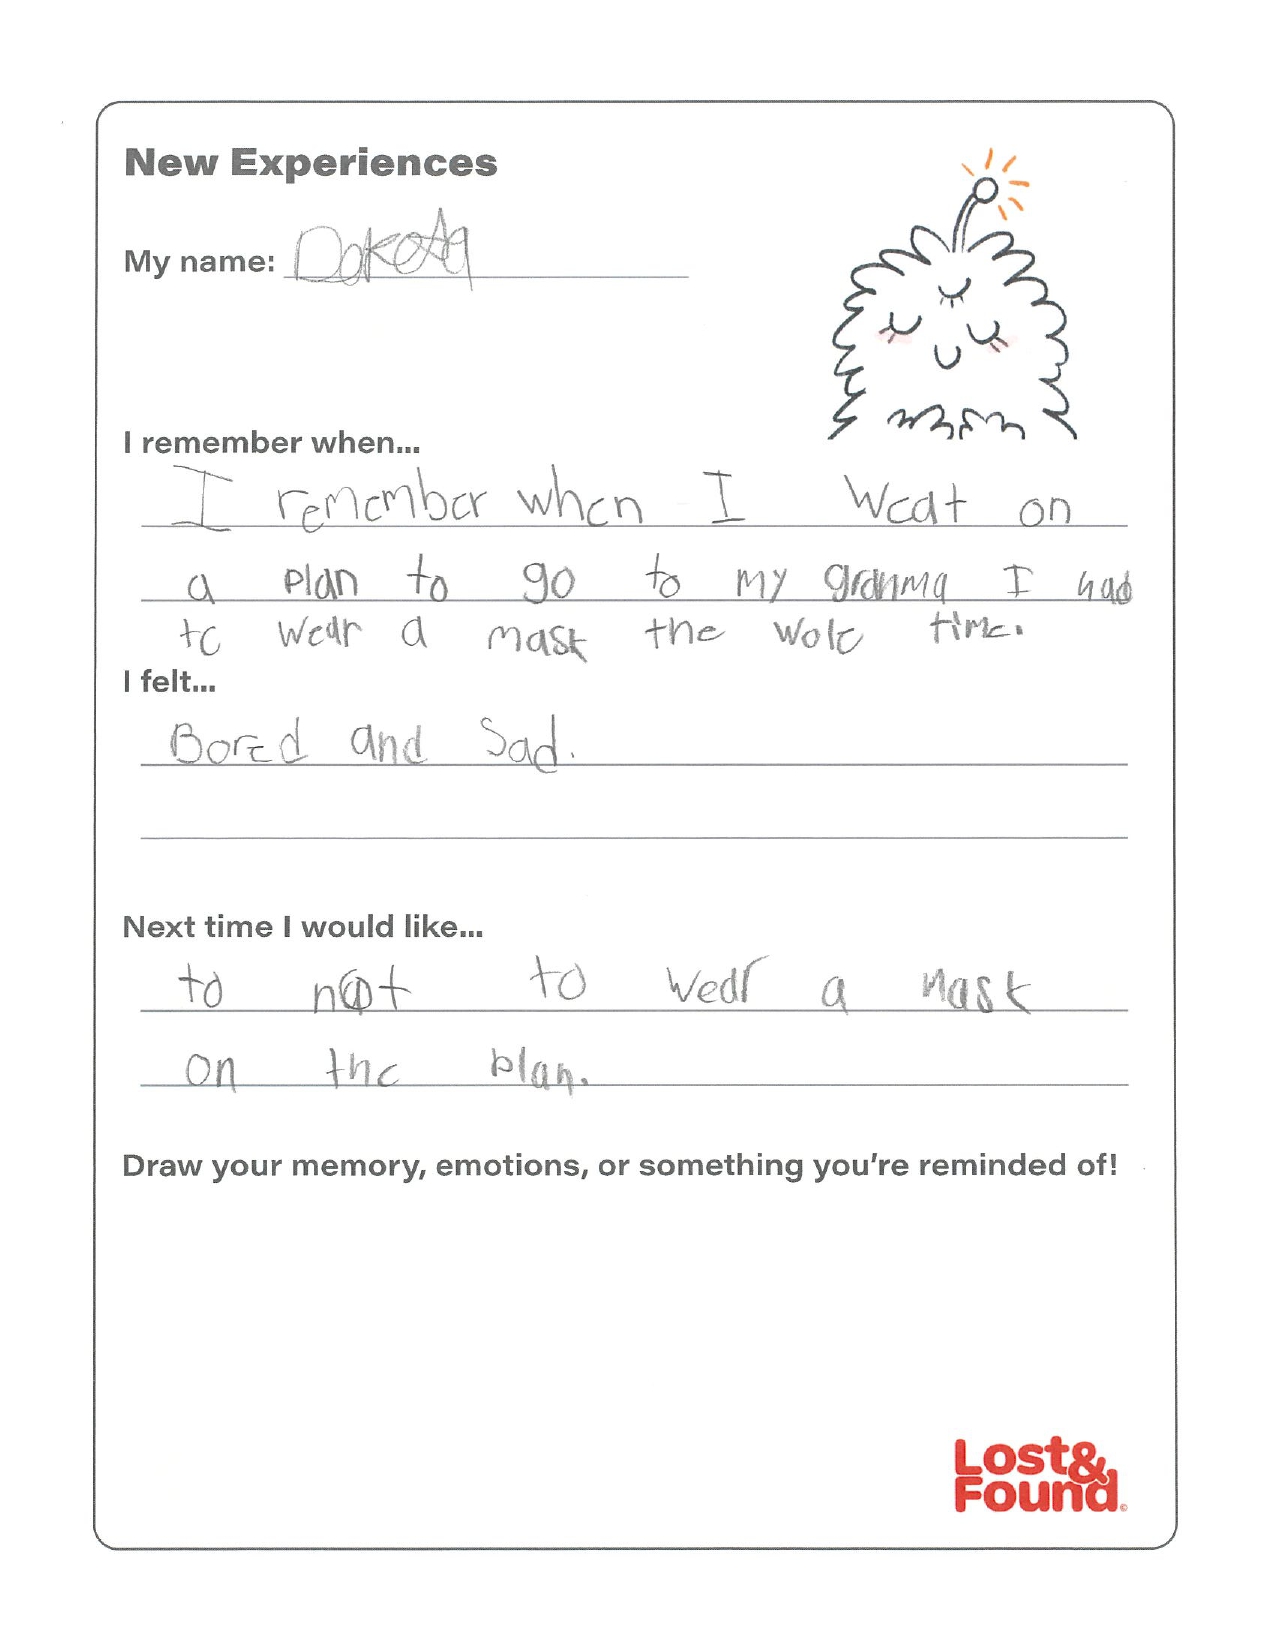 New Experiences
My name: Dakota
I remember when...
I remember when I weat on
a plan to go to my granma I had
to wear a mask the wole time.
I felt...
Bored and Sad.
Next time I would like...
to not to wear a mask
on the plan.
Draw your memory, emotions, or something you're reminded of!
Lost&
Found©